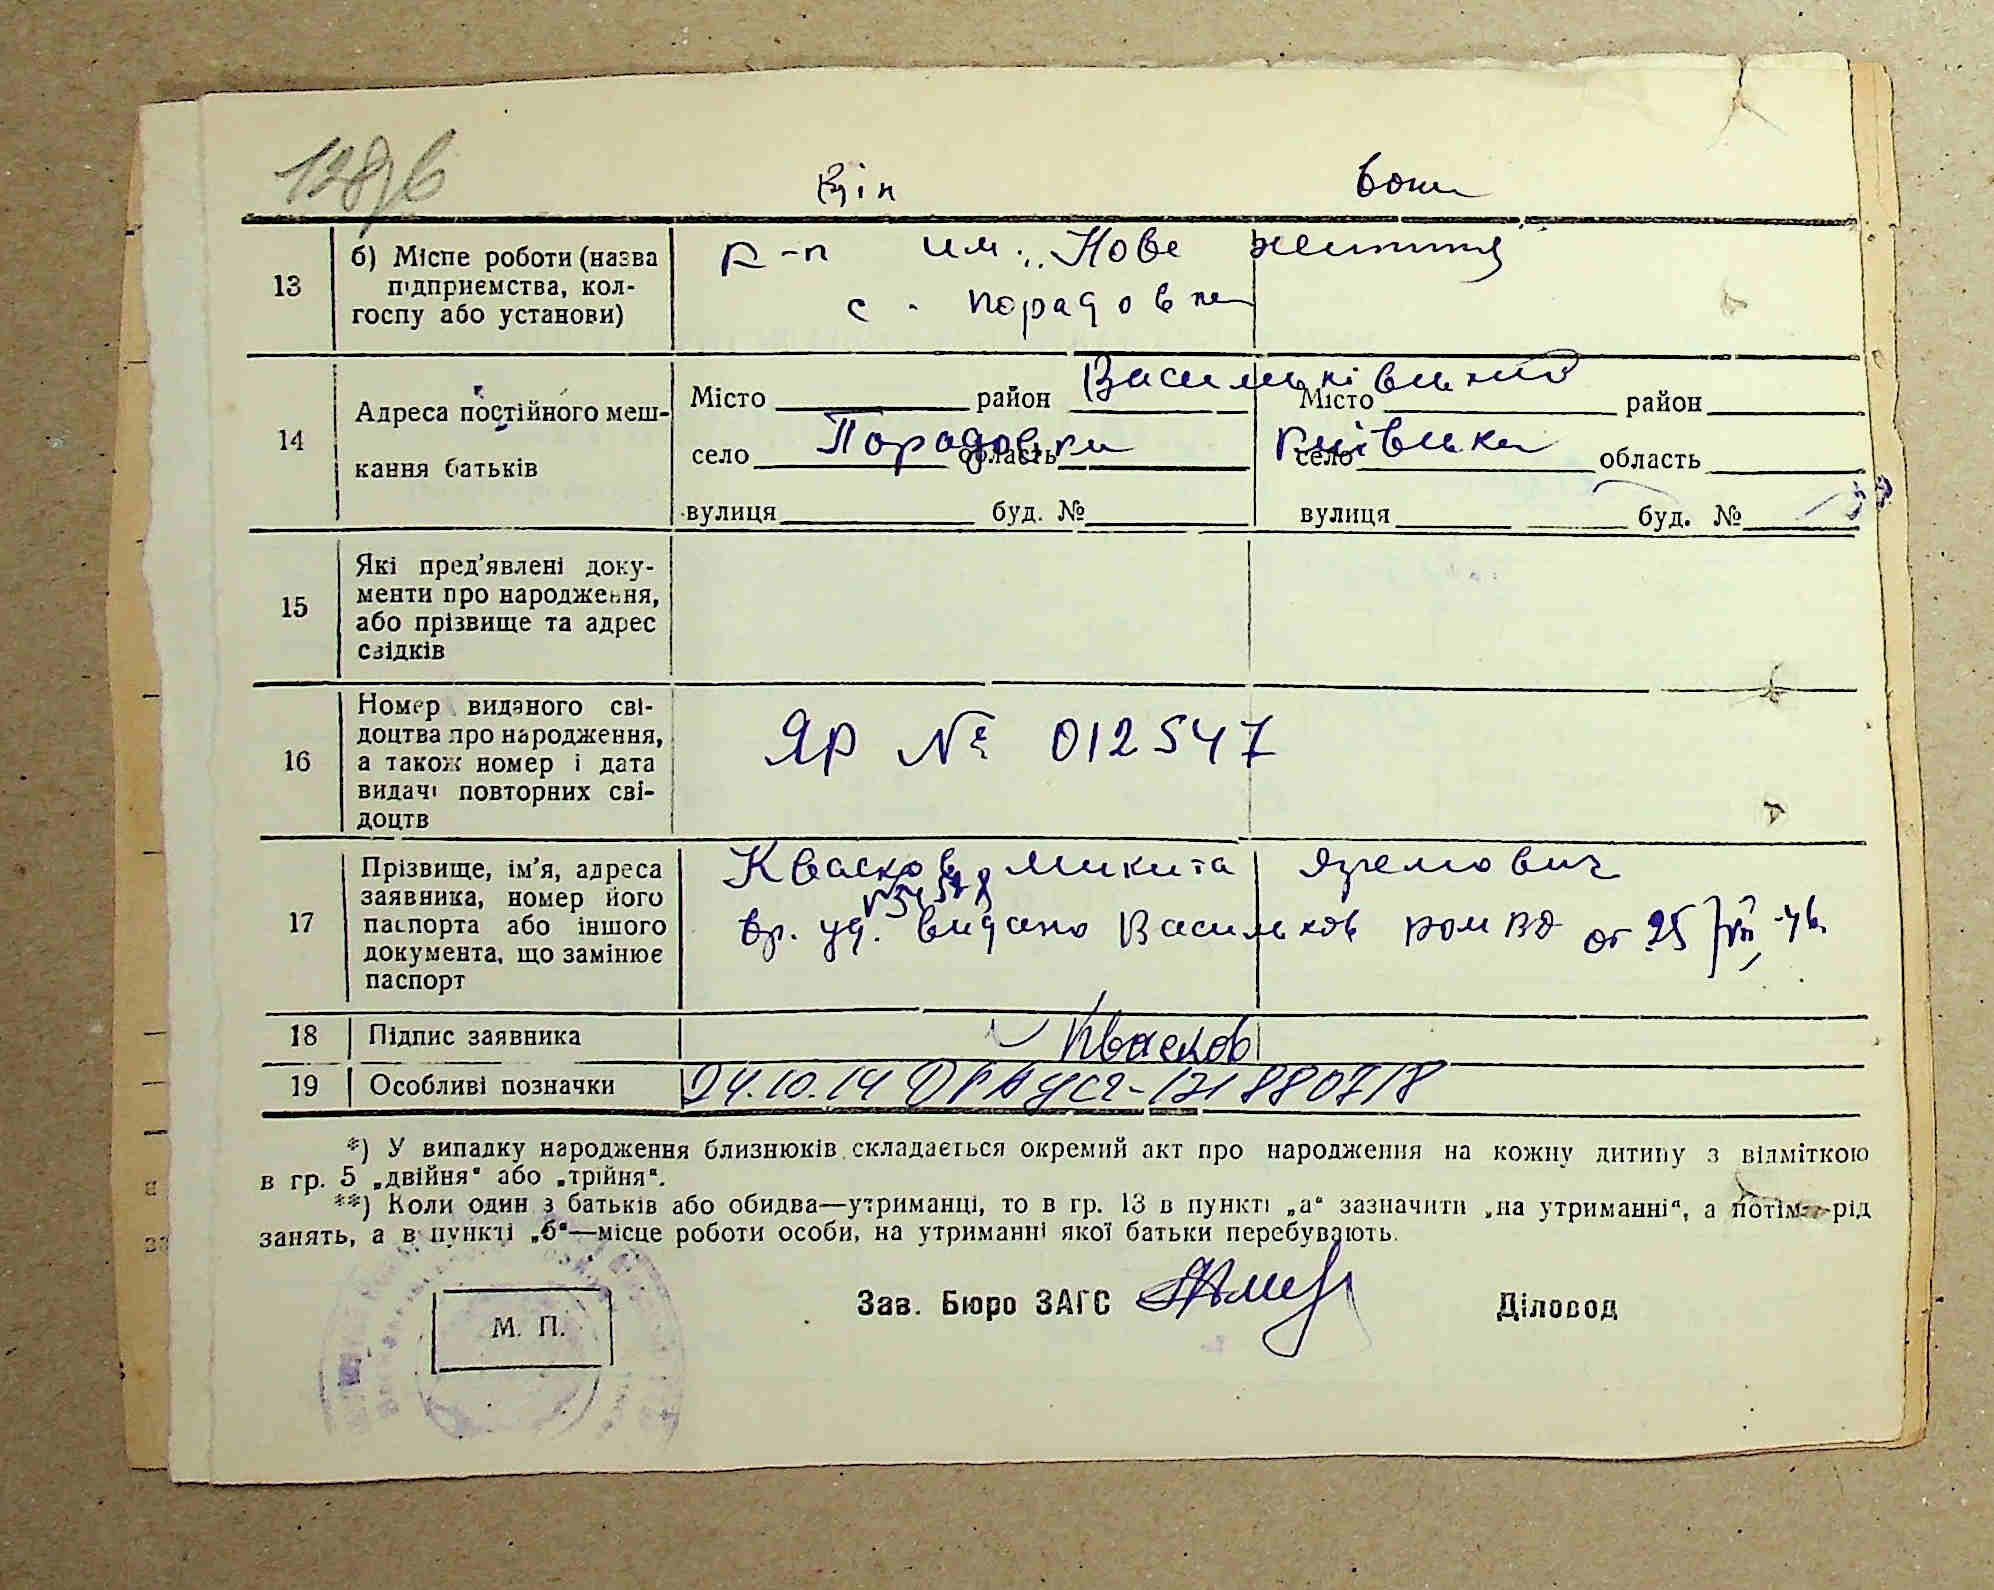 128 зв
Він Вона
13 б) Місце роботи (назва підприємства, колгоспу або установи)
к-п им. „Нове життя"
с. Порадовка
14 Адреса постійного мешкання батьків
Місто район Васильківський Місто район
село Порадовка область Київська село область
вулиця буд. № вулиця буд. №
15 Які пред'явлені документи про народження, або прізвище та адрес свідків
16 Номер виданого свідоцтва про народження, а також номер і дата видачі повторних свідоцтв
ЯР № 012547
17 Прізвище, ім'я, адреса заявника, номер його паспорта або іншого документа, що замінює паспорт
Квасков Микита Яремович
вр. уд. видано Васильков РОМВД от 25/VII-46
18 Підпис заявника Квасков
19 Особливі позначки 24.10.14
*) У випадку народження близнюків складається окремий акт про народження на кожну дитину з відміткою
в гр. 5 „двійня" або „трійня".
**) Коли один з батьків або обидва—утриманці, то в гр. 13 в пункті „а" зазначити „на утриманні", а потім—рід
занять, а в пункті „б"—місце роботи особи, на утриманні якої батьки перебувають.
М. П.
Зав. Бюро ЗАГС Діловод